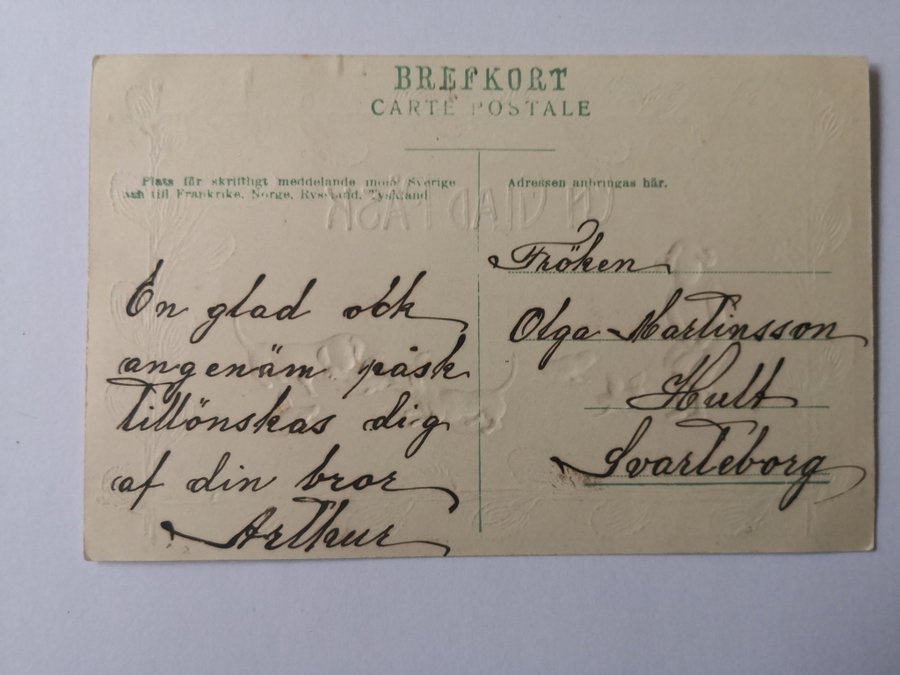 BREFKORT
CARTE POSTALE
Plats för skriftligt meddelande inom Sverige
och till Frankrike, Norge, Ryssland, Tyskland
Adressen anbringas här.
En glad ock
angenäm påsk
tillönskas dig
af din bror
Arthur
Fröken
Olga Martinsson
Hult
Svarteborg